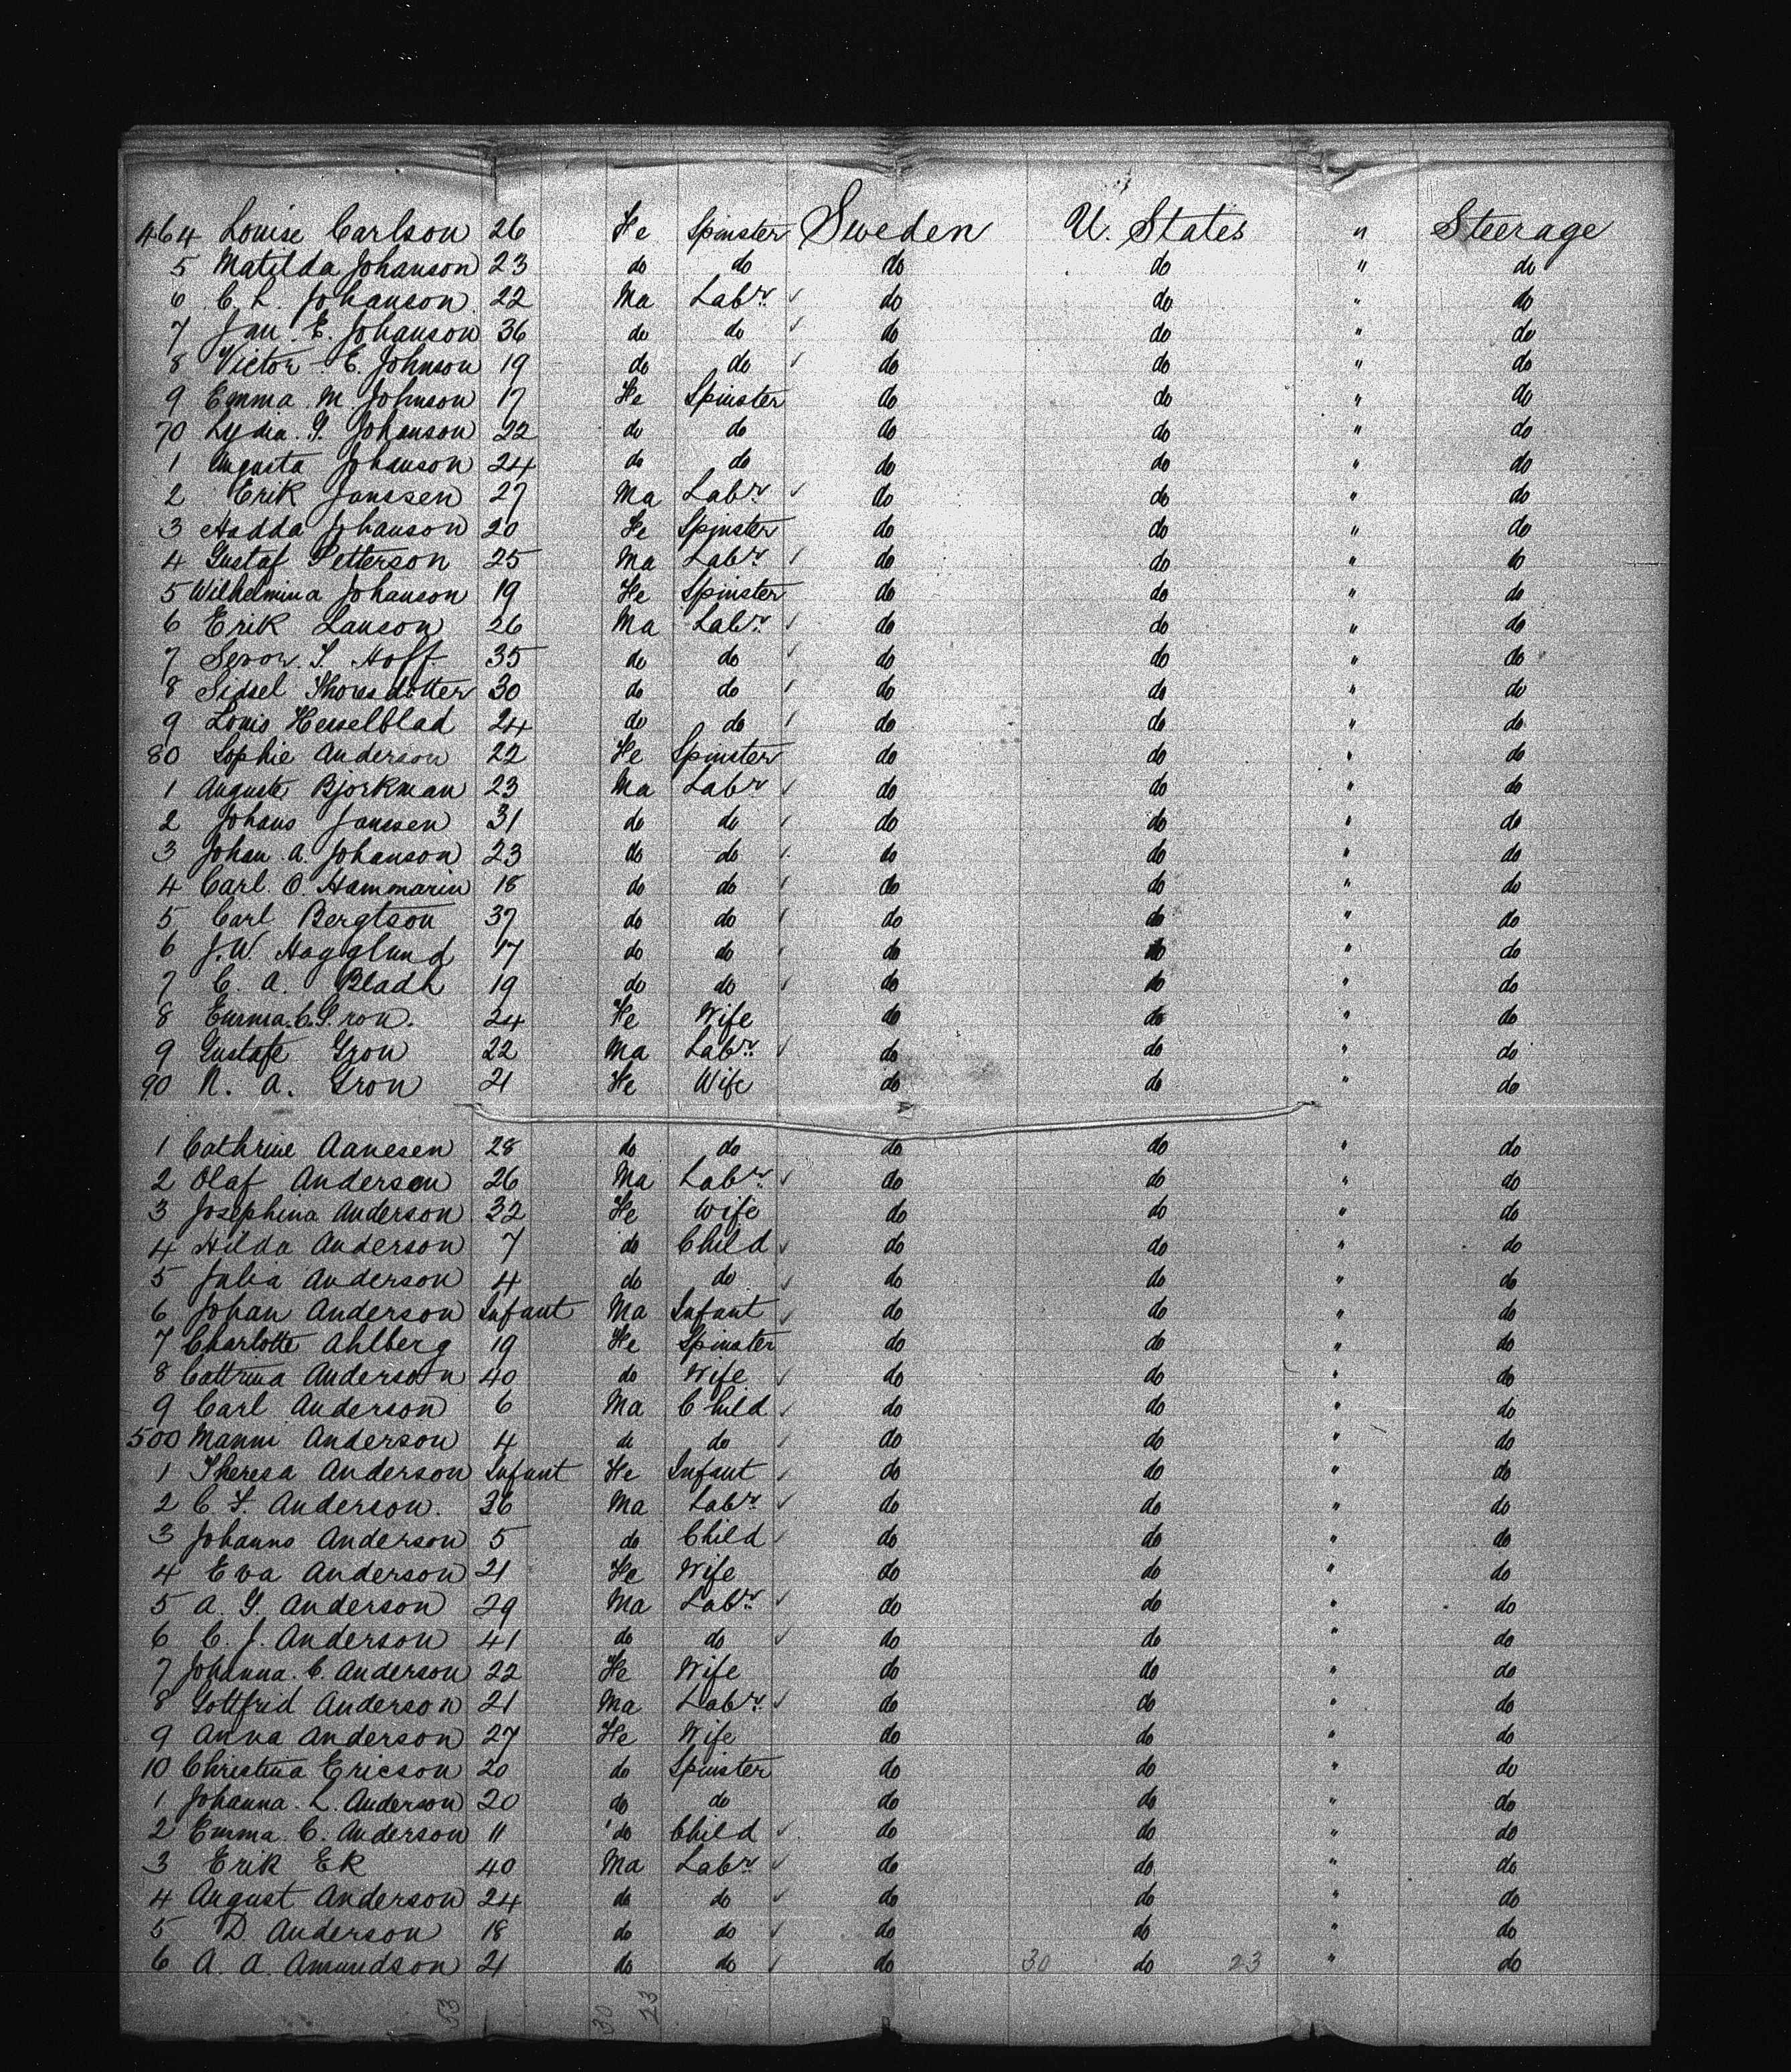 464 Louise Carlson 26 Fe Spinster Sweden U. States " Steerage
5 Matilda Johanson 23 do do do do " do
6 C. L. Johanson 22 Ma Labr. do do " do
7 Jan. E. Johanson 36 do do do do " do
8 Victor E. Johnson 19 do do do do " do
9 Emma M. Johnson 17 Fe Spinster do do " do
70 Lydia. G. Johanson 22 do do do do " do
1 Augusta Johanson 24 do do do do " do
2 Erik Janssen 27 Ma Labr. do do " do
3 Hadda Johanson 20 Fe Spinster do do " do
4 Gustaf Petterson 25 Ma Labr. do do " do
5 Wilhelmina Johanson 19 Fe Spinster do do " do
6 Erik Lanson 26 Ma Labr. do do " do
7 Hoff 35 do do do do " do
8 Sidsel Thorsdotter 30 do do do do " do
9 Louis Hesselblad 24 do do do do " do
80 Sophie Anderson 22 Fe Spinster do do " do
1 Auguste Bjorkman 23 Ma Labr. do do " do
2 Johans Janssen 31 do do do do " do
3 Johan. A. Johanson 23 do do do do " do
4 Carl. O. Hammarin 18 do do do do " do
5 Carl Bergtson 37 do do do do " do
6 J. W. Hagglund 17 do do do do " do
7 C. A. Bladh 19 do do do do " do
8 Emma. C. Gron. 24 Fe Wife do do " do
9 Gustafe Gron 22 Ma Labr. do do " do
90 N. A. Gron 21 Fe Wife do do " do
1 Cathrine Aanesen 28 do do do do " do
2 Olaf Anderson 26 Ma Labr. do do " do
3 Josephina Anderson 32 Fe Wife do do " do
4 Hilda Anderson 7 do Child do do " do
5 Julia Anderson 4 do do do do " do
6 Johan Anderson Infant Ma Infant do do " do
7 Charlotte Ahlberg 19 Fe Spinster do do " do
8 Cattrina Anderson 40 do Wife do do " do
9 Carl Anderson 6 Ma Child do do " do
500 Manni Anderson 4 do do do do " do
1 Theresa Anderson Infant Fe Infant do do " do
2 C. F. Anderson. 36 Ma Labr. do do " do
3 Johanns Anderson 5 do Child do do " do
4 Eva Anderson 21 Fe Wife do do " do
5 A. G. Anderson 29 Ma Labr. do do " do
6 C. J. Anderson 41 do do do do " do
7 Johanna. C. Anderson 22 Fe Wife do do " do
8 Gottfrid Anderson 21 Ma Labr. do do " do
9 Anna Anderson 27 Fe Wife do do " do
10 Christina Ericson 20 do Spinster do do " do
1 Johanna. L. Anderson 20 do do do do " do
2 Emma. C. Anderson 11 do Child do do " do
3 Erik Ek 40 Ma Labr. do do " do
4 August Anderson 24 do do do do " do
5 D. Anderson 18 do do do do " do
6 A. A. Amundson 21 do do do 30 do 23 " do
53 30 23